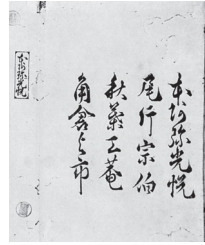 本阿弥光悦
尾形宗伯
秋葉工菴
角倉与市
本阿弥光悦